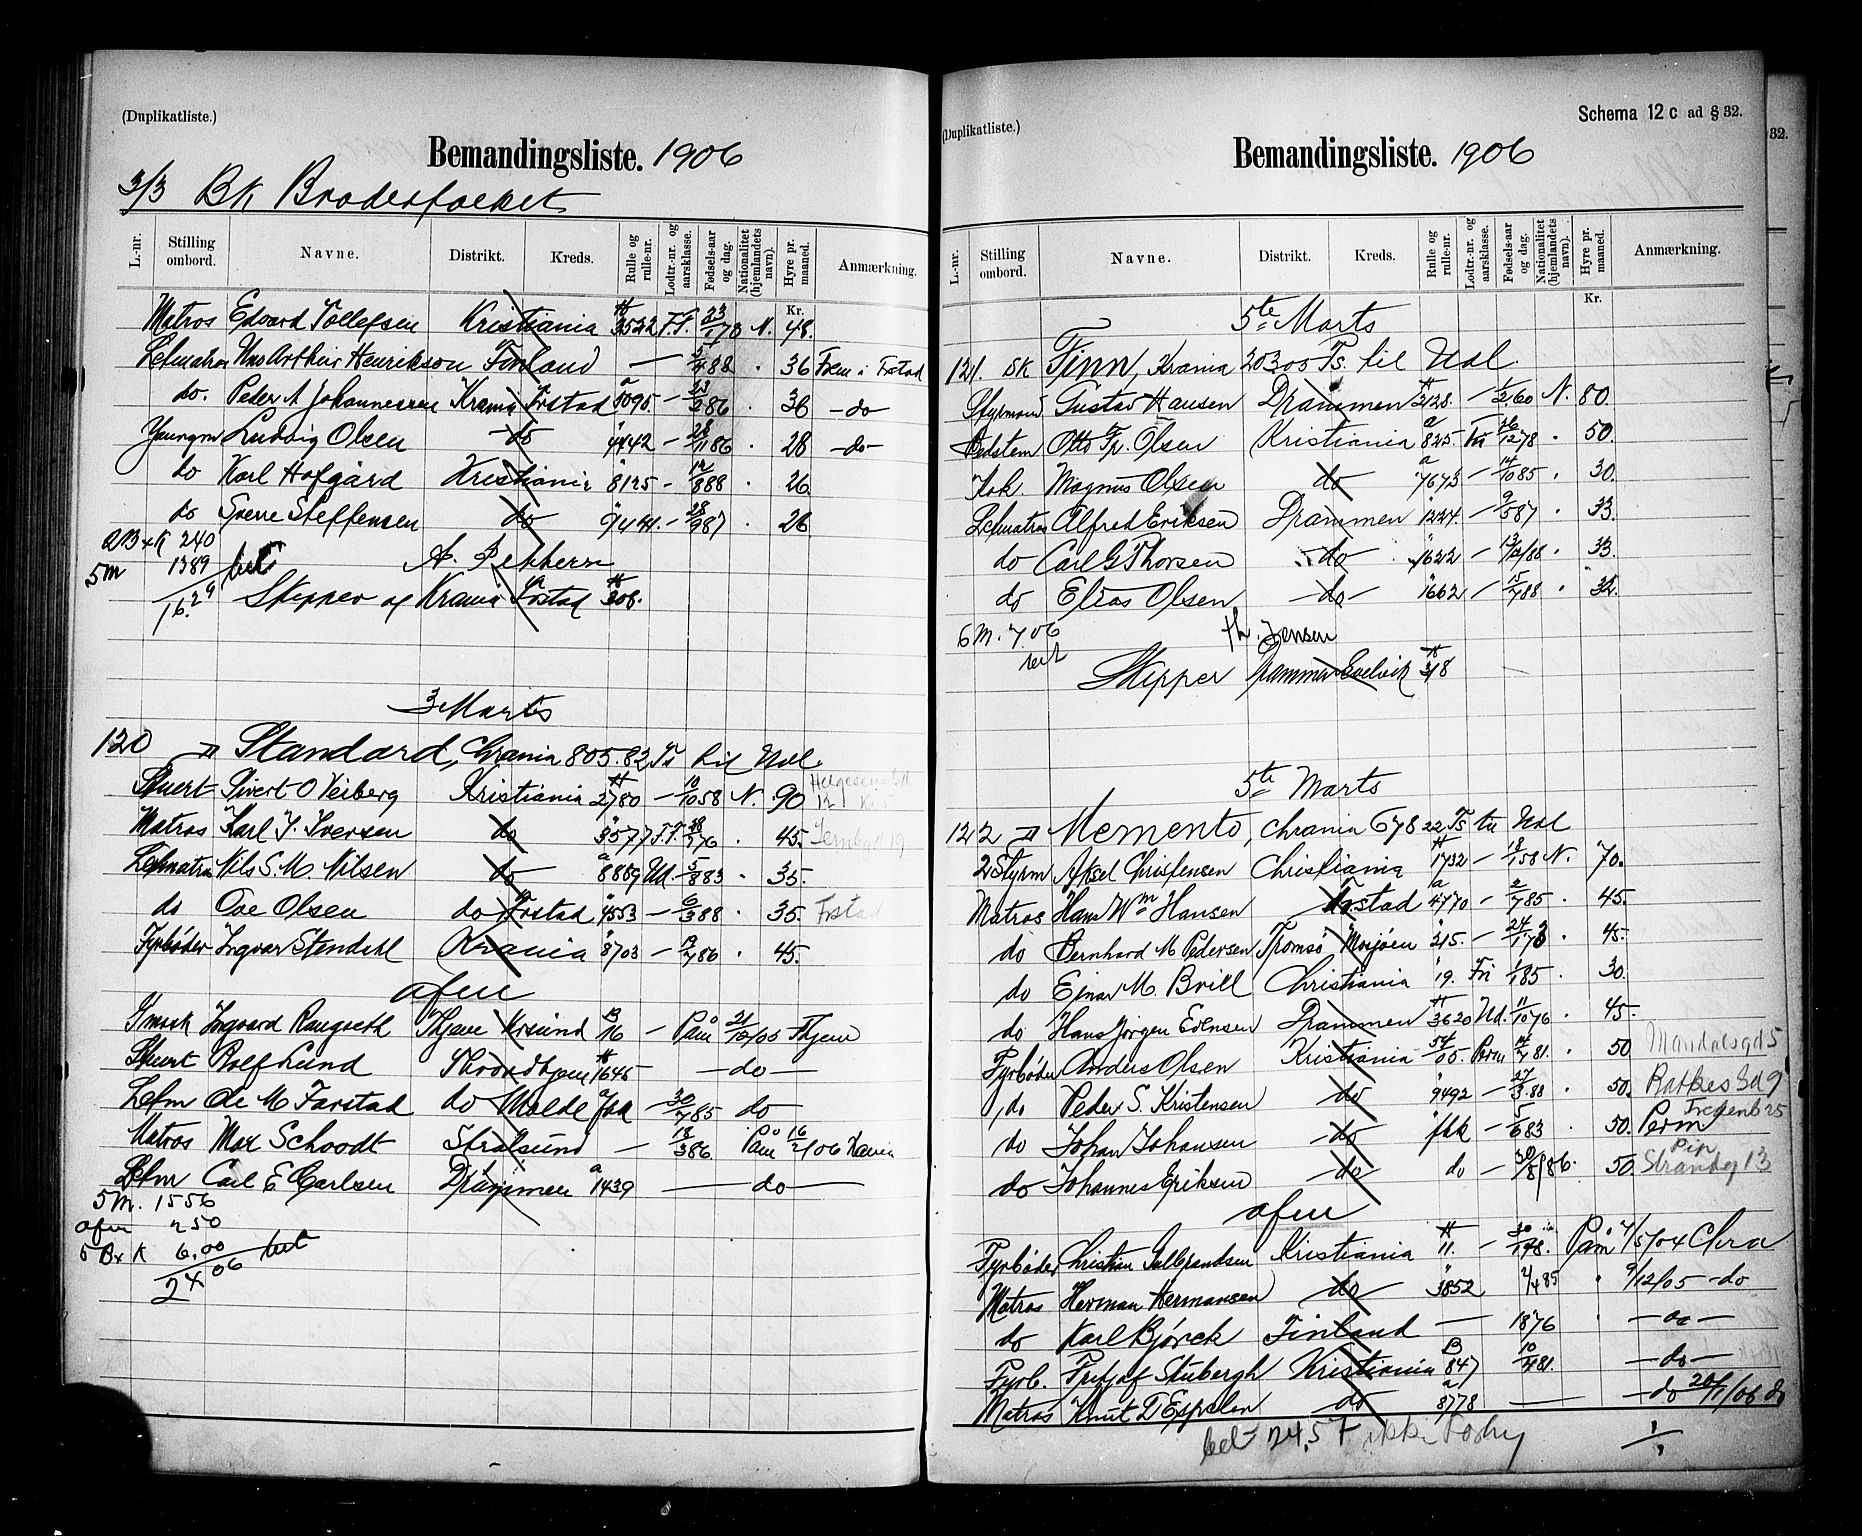 (Duplikatliste.)
Bemandingsliste. 1906
3/3 Bk Broderfolket
L.-nr. Stilling ombord. Navne. Distrikt. Kreds. Rulle og rulle-nr. Lodtr.-nr. og aarsklasse. Fødsels-aar og dag. Nationalitet (hjemlandets navn). Hyre pr. maaned. Anmærkning.
Kr.
Matros Edvard Tollefsen Kristiania 3522 F.F. 23/1 73 N. 48.
Letmatros Arthur Henrikson Finland — 5/4 88 . 36 Frem i Frstad
do. Peder A Johannessen Krania Frstad 5095 — 23/2 86 . 36 — do
Youngm Ludvig Olsen — do 4442 — 28/11 86 . 28 — do —
do Karl Hofgård Kristiania 8195 — 12/8 88 . 26
do Sverre Steffensen do 9444. — 28/9 87 . 26
240
5M 1389 bet
16.29 Skipper af Krania Frstad 308.
3 Marts
120 D Standard, Chrania 805.82 Ts til Udl.
Stuert Sivert O Veiberg Kristiania 2780 — 10/10 58 N. 90
Matros Karl J. Iversen do 3577 F.F. 28/1 76 . 45.
Letmatros Nils S. M. Nilsen do 8889 Ud. 5/8 83 . 35.
do Ove Olsen do Frstad 4553 — 6/3 88 . 35. Frstad
Fyrbøder Ingvar Stendahl Krania 8703 — 19/7 86 . 45.
afm
Ingvard Raugseth Thjem Krsund B 16 — Påm 21/12/05 Thjem
Stuert Rolf Lund Throndhjem 1645 — do —
Letm Ole M Farstad do Molde 30/7 85 do
Matros Max Schoodt Stralsund — 13/3 86. Påm 16/2/06
Letm Carl E Carlsen Drammen a 1439 — do —
5M. 1556
afm 250
5 B x K 6.00 bet
24.06
(Duplikatliste.)
Schema 12 c ad § 32.
Bemandingsliste. 1906
L.-nr. Stilling ombord. Navne. Distrikt. Kreds. Rulle og rulle-nr. Lodtr.-nr. og aarsklasse. Fødsels-aar og dag. Nationalitet (hjemlandets navn). Hyre pr. maaned. Anmærkning.
Kr.
5te Marts
121. SK Finn, Krania 203.05 Ts. til Udl
Styrmand Gustav Hansen Drammen 2128 — 1/2 60 N. 80.
Bedstem Otto Fr. Olsen Kristiania a 825. Fri 26/12 78 . 50.
Kok Magnus Olsen do a 7673 — 14/10 85 . 30.
Letmatros Alfred Eriksen Drammen 1224. — 9/5 87 . 33.
do Carl G Thorsen do 1622 — 13/12/88 . 33.
do Elias Olsen — do — 1662 — 15/7 88 . 32.
6M. 7.06 Th. Jensen
bet
Skipper Drammen 318
5te Marts
122 D Memento, Chrania 678.22 Ts til Udl
2 Styrm Aksel Christensen Christiania 1732 — 18/1 58 N. 70.
Matros Hans Wm Hansen Frstad a 4770 — 2/7 85 . 45.
do Bernhard M Pedersen Tromsø Mosjøen 215. — 24/1 73 . 45.
do Ejnar M. Brill Christiania 19. Fri 1/1 85 . 30.
do Hans Jørgen Evensen Drammen 3620 Ud. 11/10 76 . 45.
Fyrbøder Anders Olsen Kristiania 54/05. Perm 14/7 81. . 50 Mandalsgd 5
do Peder S. Kristensen do 9492 — 27/3 88 . 50. Ratkes Gd 9
do Johan Johansen — do — fkk — 5/6 83 . 50. Perm Fredenb 25
do Johannes Eriksen — do — do — 30/8/86. 50. Strandg 13
afm
Fyrbøder Christian Gulbrandsen Kristiania 11. — 30/1 78. Påm 4/5/04 Chra
Matros Herman Hermansen — do — 3852 2/4 85 . 9/12/05 — do
do Karl Bjørck Finland — 1876 . — do —
Fyrb. Fritjof Stubergh Kristiania B 847 10/4 81. — do —
Matros Knut D Espelen — do — a 8778 — — do 20/1/06 do
bet 24,57